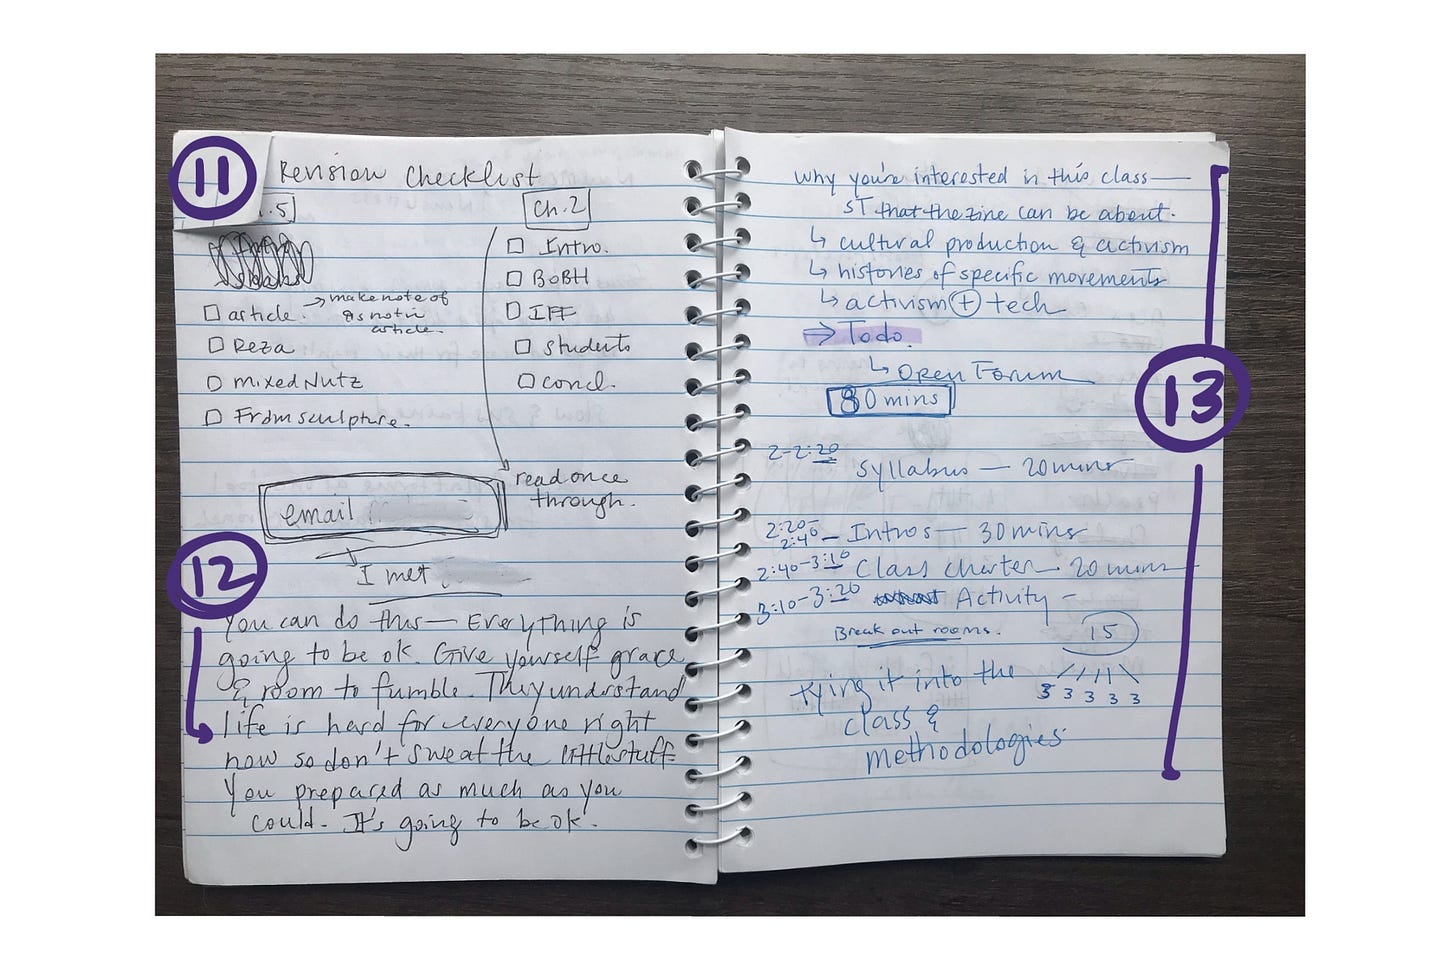 11
Revision Checklist
.5
article. → make note of
as not in
article.
Reza
mixed Nutz
From sculpture.
Ch.2
Intro.
BoBH
IFF
students
concl.
read once
through.
email
I met
12
You can do this — Everything is
going to be ok. Give yourself grace
& room to fumble. They understand
life is hard for everyone right
now so don't sweat the little stuff
You prepared as much as you
could. It's going to be ok.
13
why you're interested in this class —
ST that the zine can be about.
↳ cultural production & activism
↳ histories of specific movements
↳ activism + tech
⇒ Todo.
↳ Open Forum
80 mins
2-2:20 Syllabus — 20 mins
2:20-
2:40 — Intros — 30 mins
2:40-3:10 Class charter 20 mins
3:10-3:20 Activity -
Break out rooms. 15
3 3 3 3 3
tying it into the
class &
methodologies